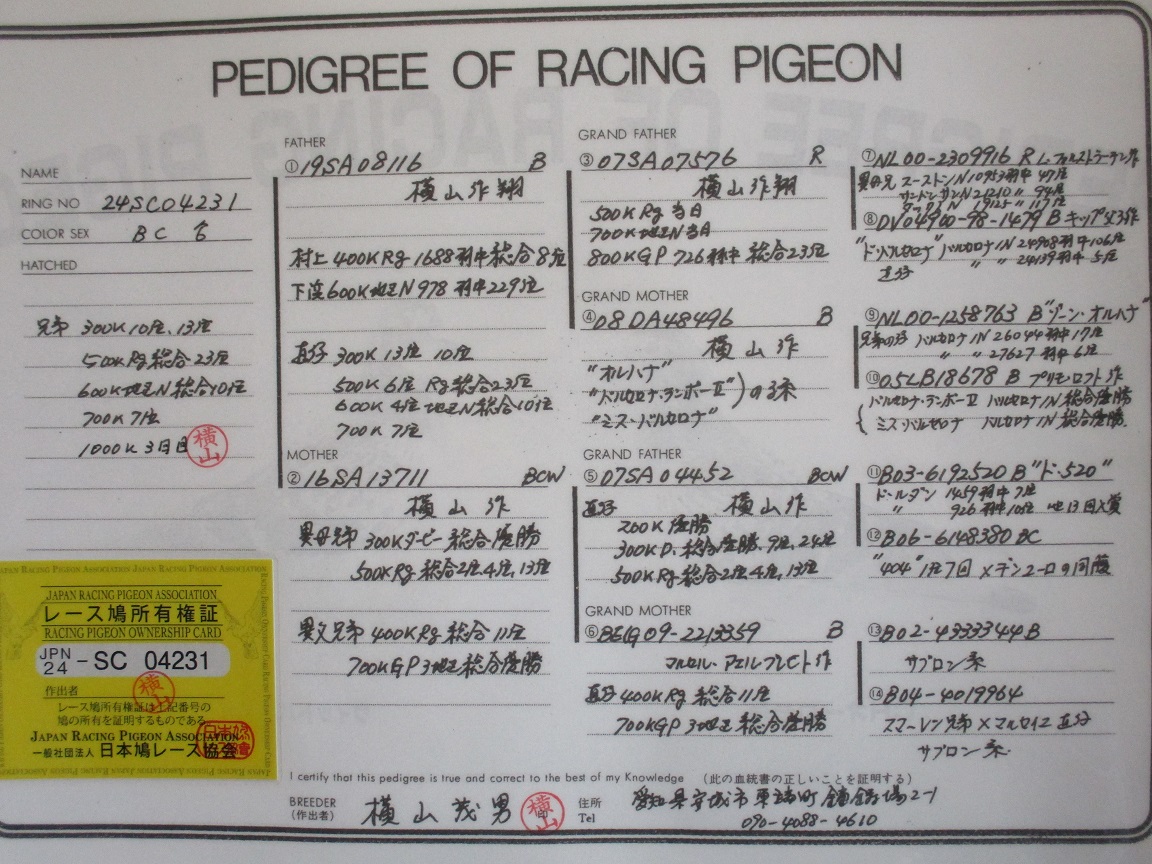 PEDIGREE OF RACING PIGEON
NAME
RING NO 24SC04231
COLOR SEX BC ♀
HATCHED
兄弟 300K10位、13位
500KRg総合23位
600K地区N総合10位
700K7位
1000K3日目
横山
JAPAN RACING PIGEON ASSOCIATION
レース鳩所有権証
RACING PIGEON OWNERSHIP CARD
JPN
24 - SC 04231
作出者
横山
レース鳩所有権証は上記番号の
鳩の所有を証明するものである。
JAPAN RACING PIGEON ASSOCIATION
一般社団法人 日本鳩レース協会
FATHER
①19SA08116 B
横山作翔
村上400KRg1688羽中総合8位
600K地区N978羽中229位
直仔 300K 13位 10位
500K6位 Rg総合23位
600K4位 地区N総合10位
700K7位
MOTHER
②16SA13711 BCW
横山作
異母兄弟 300Kダービー総合優勝
500KRg総合2位,4位,13位
異父兄弟 400KRg総合11位
700KGP3地区総合優勝
GRAND FATHER
③07SA07576 R
横山作翔
500KRg当日
700K地区N当日
800KGP726羽中総合23位
GRAND MOTHER
④08DA48496 B
横山作
"オルハナ"
"バルセロナ・ランボーⅡ" の系
"ミス・バルセロナ"
GRAND FATHER
⑤07SA04452 BCW
直仔 横山作
200K優勝
300KD.総合優勝,9位,24位
500KRg総合2位,4位,13位
GRAND MOTHER
⑥BELG09-2213359 B
マルセル・アエルブレヒト作
直仔400KRg総合11位
700KGP3地区総合優勝
⑦NL00-2309916 R
異母兄 10953羽中47位
N21210〃94位
N19125〃117位
⑧DV04900-98-1479 B
"ド・バルセロナ" バルセロナIN24908羽中106位
〃 〃 24139羽中5位
直仔
⑨NL00-1258763 B "ゾーン・オルハナ"
バルセロナIN26044羽中17位
〃 27627羽中6位
⑩05LB18678 B プリモロフト作
バルセロナ・ランボーⅡ バルセロナIN総合優勝
ミス・バルセロナ バルセロナIN総合優勝
⑪B03-6192520 B "ド・520"
ド・ルダン 1459羽中7位
〃 926羽中10位 他13回入賞
⑫B06-6148380 BC
"404" 1位7回×デンユーロの同腹
⑬B02-4333344B
サブロン系
⑭B04-4019964
スマーレン兄弟×マルセイユ直仔
サブロン系
I certify that this pedigree is true and correct to the best of my Knowledge (此の血統書の正しいことを証明する)
BREEDER
(作出者) 横山茂男
横山
印
住所 愛知県安城市東端町鐘鋳場2-1
Tel 090-4088-4610